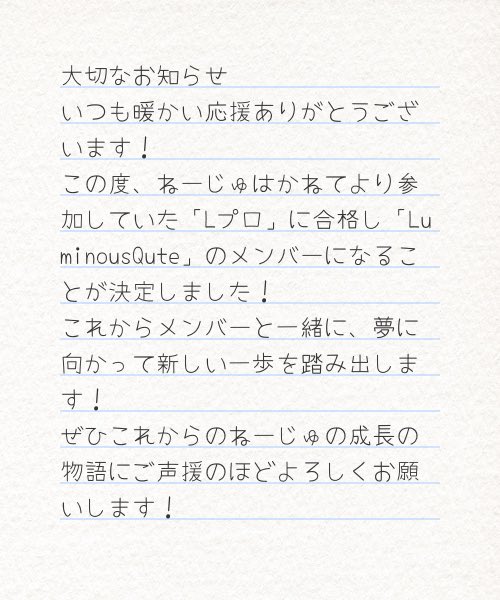 大切なお知らせ
いつも暖かい応援ありがとうござ
います！
この度、ねーじゅはかねてより参
加していた「Lプロ」に合格し「Lu
minousQute」のメンバーになるこ
とが決定しました！
これからメンバーと一緒に、夢に
向かって新しい一歩を踏み出しま
す！
ぜひこれからのねーじゅの成長の
物語にご声援のほどよろしくお願
いします！